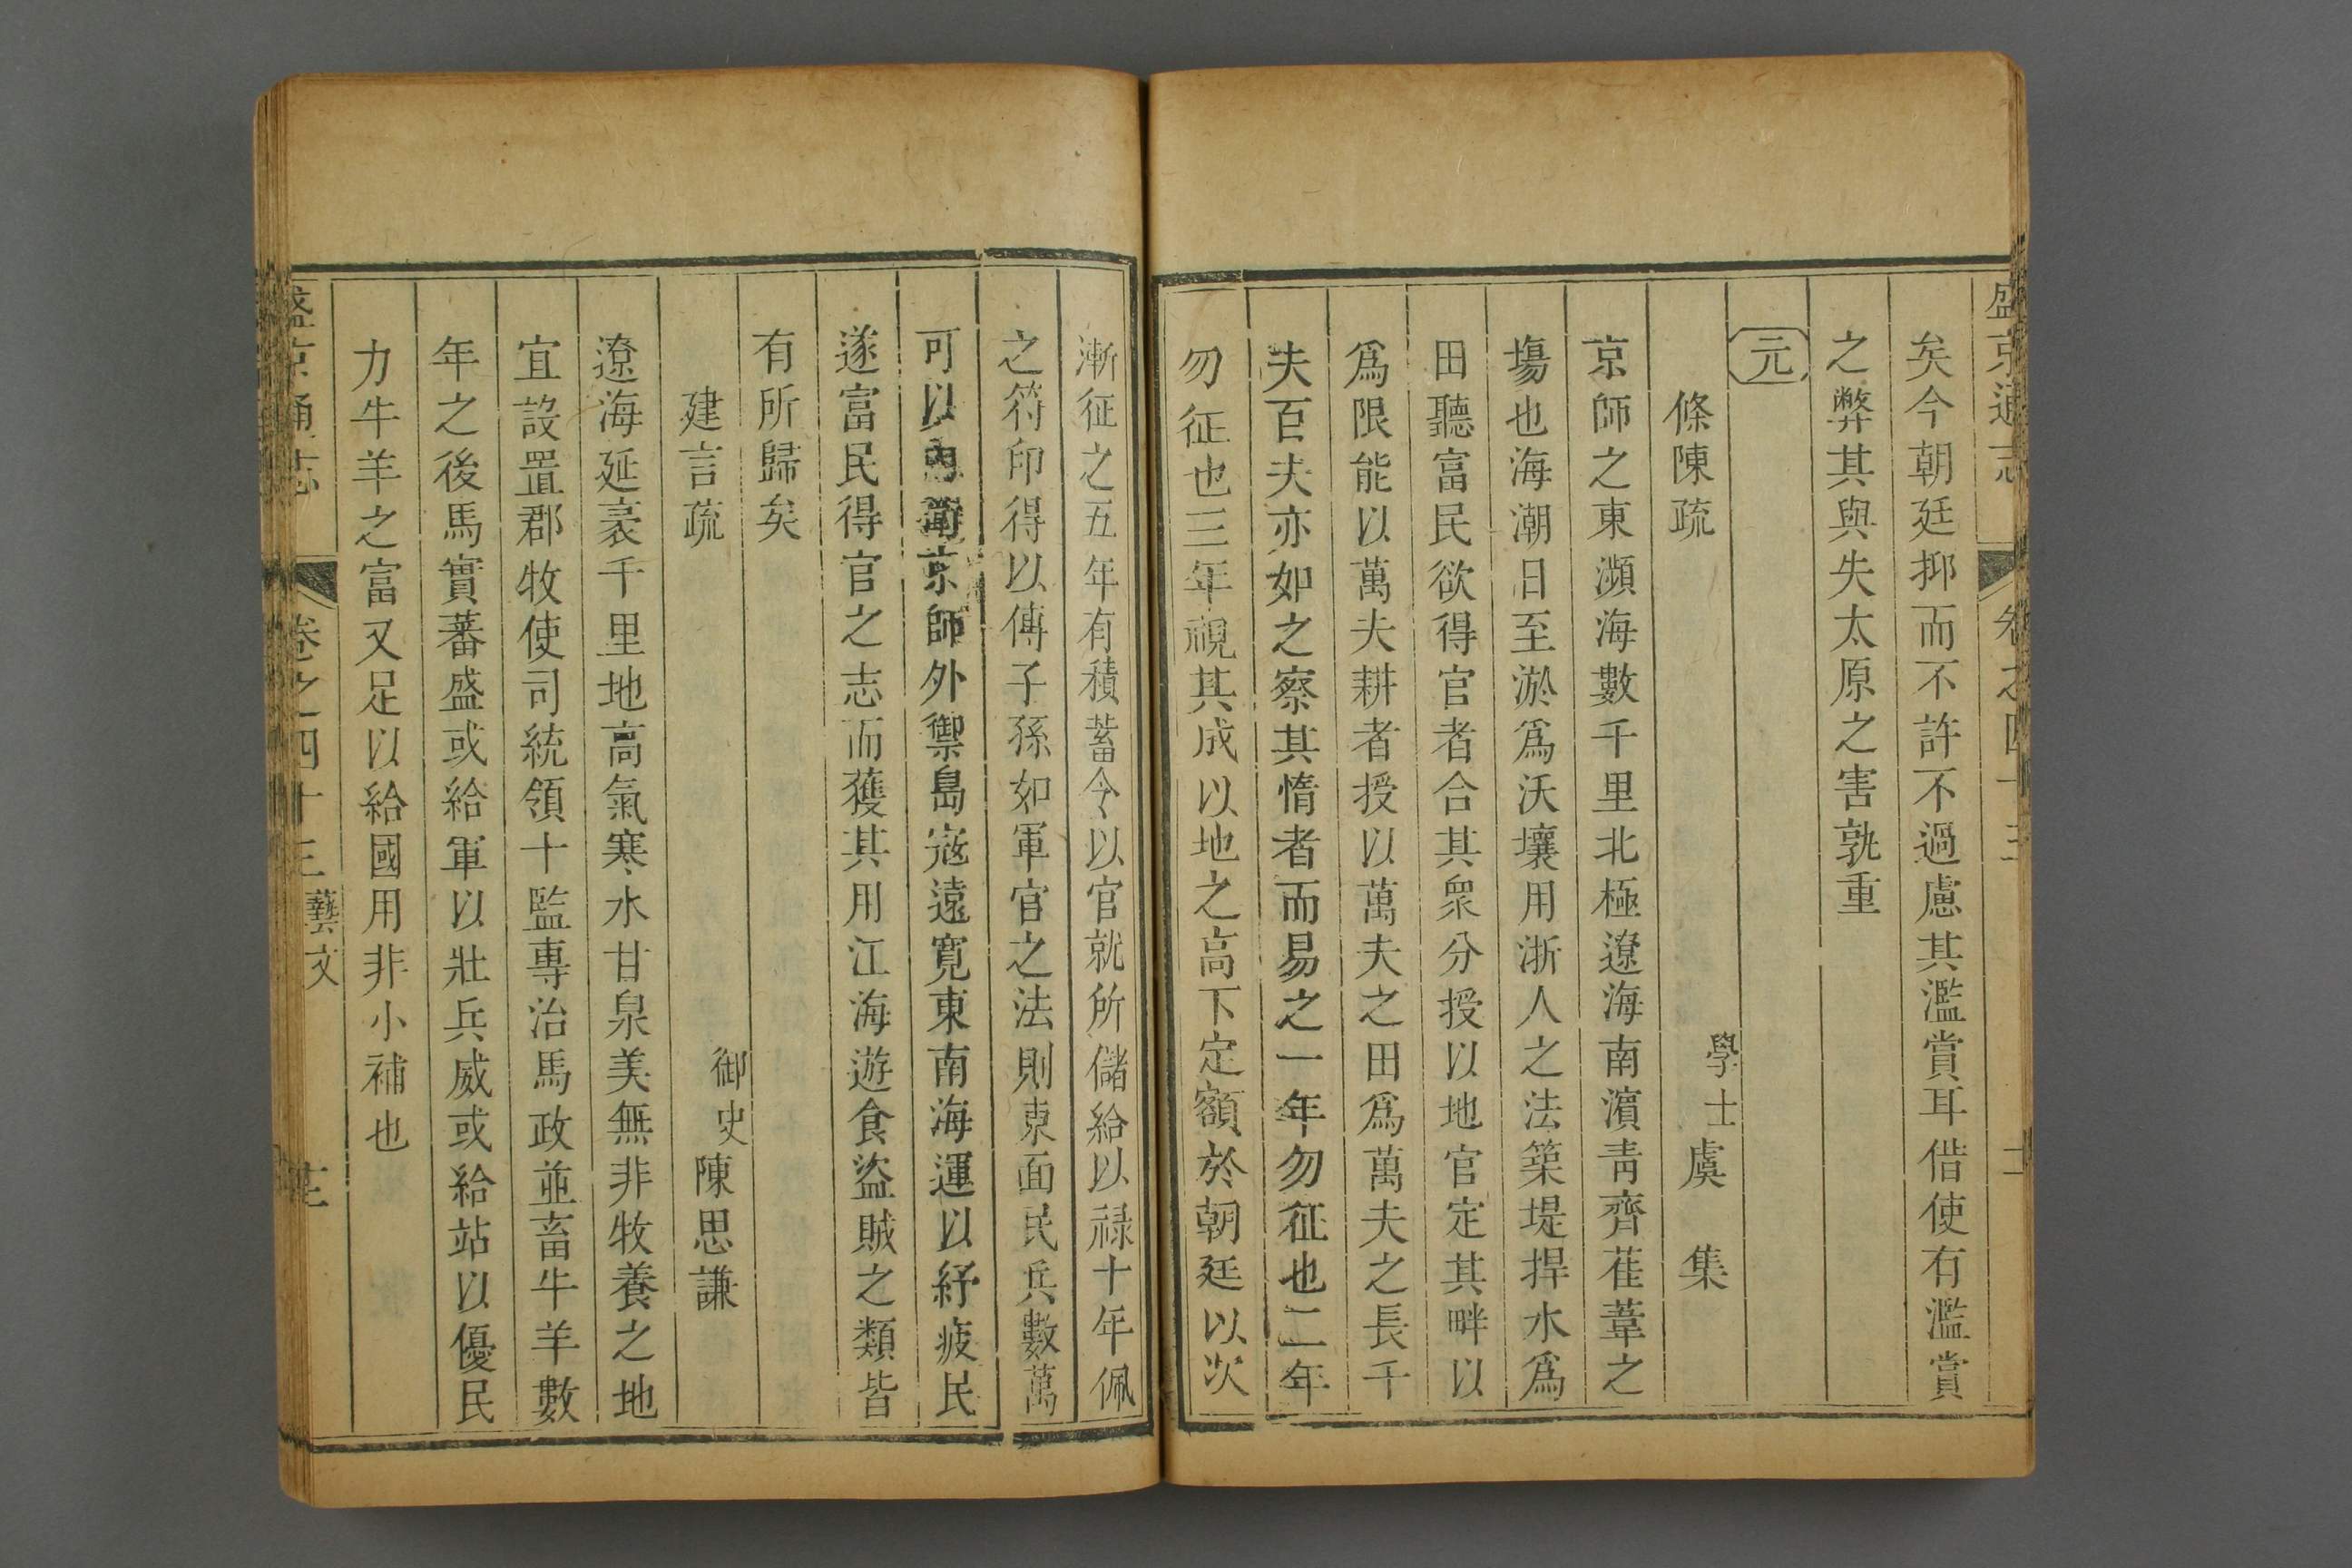 盛京通志 卷之四十三
矣今朝廷抑而不許不過慮其濫賞耳偕使有濫賞
之弊其與失太原之害孰重
元
條陳疏 學士虞集
京師之東瀕海數千里北極遼海南濱青齊萑葦之
塲也海潮日至淤爲沃壤用浙人之法築堤捍水爲
田聽富民欲得官者合其衆分授以地官定其畔以
爲限能以萬夫耕者授以萬夫之田爲萬夫之長千
夫百夫亦如之察其惰者而易之一年勿征也二年
勿征也三年視其成以地之高下定額於朝廷以次
漸征之五年有積蓄令以官就所儲給以祿十年佩
之符印得以傳子孫如軍官之法則東面民兵數萬
可以內衛京師外禦島寇遠寬東南海運以紓疲民
遂富民得官之志而獲其用江海遊食盜賊之類皆
有所歸矣
建言疏 御史陳思謙
遼海延袤千里地高氣寒水甘泉美無非牧養之地
宜設置郡牧使司統領十監專治馬政並畜牛羊數
年之後馬實蕃盛或給軍以壯兵威或給站以優民
力牛羊之富又足以給國用非小補也
盛京通志 卷之四十三 藝文